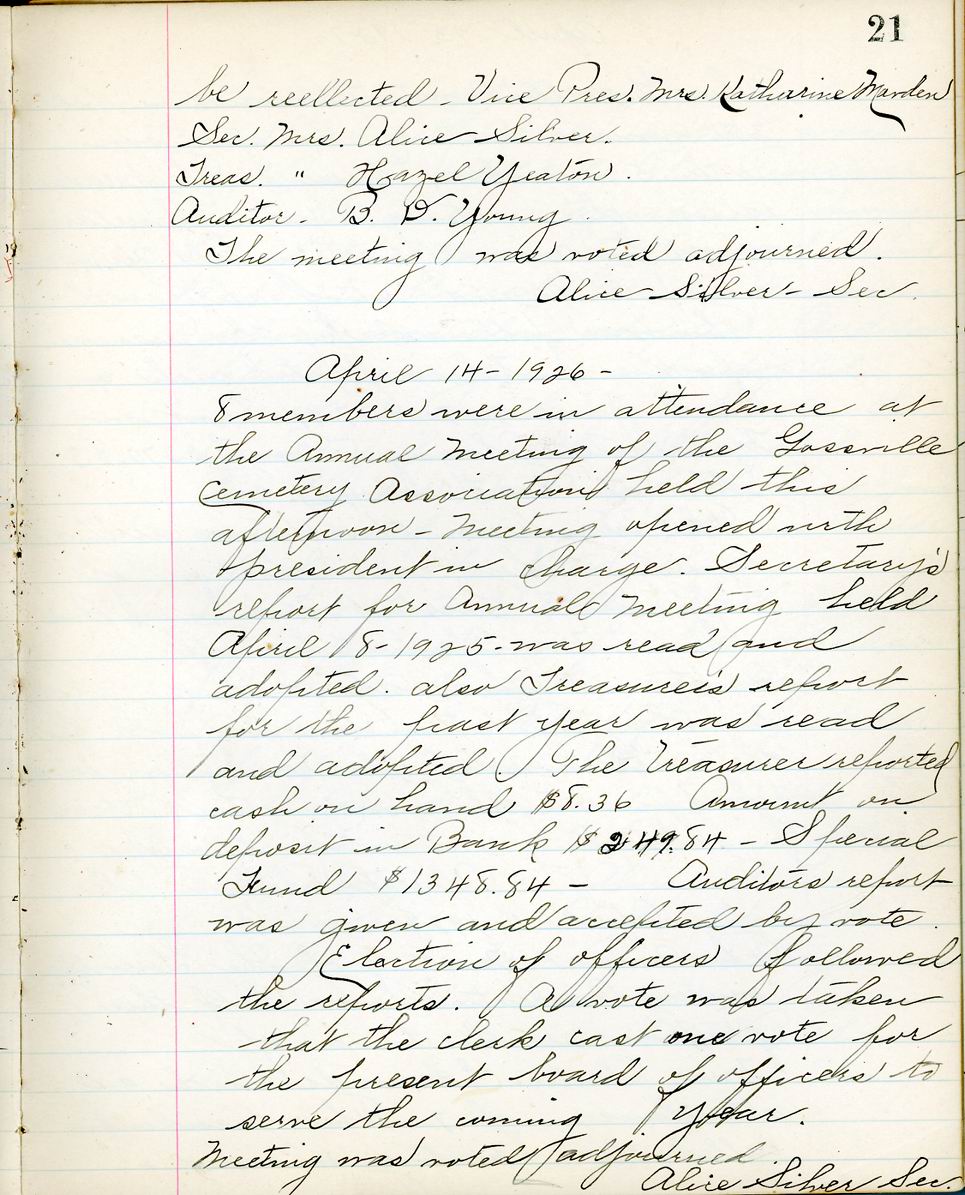 21
be reellected - Vice Pres. Mrs. Katharine Marden
Sec. Mrs. Alice Silver.
Treas. " Hazel Yeaton.
Auditor - B. D. Young.
The meeting was voted adjourned.
Alice Silver - Sec.
April 14 - 1926 -
8 members were in attendance at
the Annual Meeting of the Gossville
Cemetery Association held this
afternoon - Meeting opened with
president in charge. Secretary's
report for Annual Meeting held
April 8 - 1925 - was read and
adopted. also Treasurer's report
for the past year was read
and adopted. The Treasurer reported
cash on hand $8.36 Amount on
deposit in Bank $249.84 - Special
Fund $1348.84 - Auditors report
was given and accepted by vote.
Election of officers followed
the reports. A vote was taken
that the clerk cast one vote for
the present board of officers to
serve the coming year.
Meeting was voted adjourned.
Alice Silver Sec.